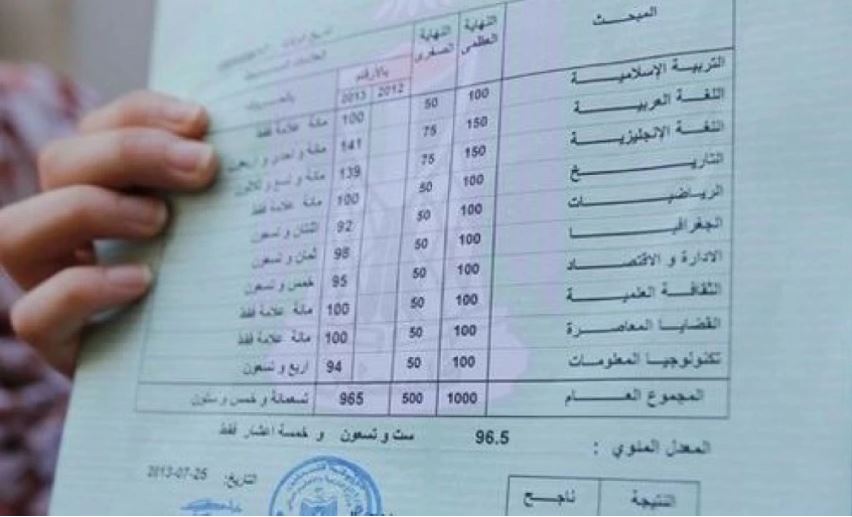 المبحث النهاية العظمى النهاية الصغرى
بالأرقام
2012 2013
التربية الإسلامية 100 50 100 مائة علامة فقط
اللغة العربية 150 75 141 مائة و احدى و اربعون
اللغة الإنجليزية 150 75 139 مائة و تسع و ثلاثون
التاريخ 100 50 100 مائة علامة فقط
الرياضيات 100 50 92 اثنتان و تسعون
الجغرافيا 100 50 98 ثمان و تسعون
الادارة و الاقتصاد 100 50 95 خمس و تسعون
الثقافة العلمية 100 50 100 مائة علامة فقط
القضايا المعاصرة 100 50 100 مائة علامة فقط
تكنولوجيا المعلومات 100 50 94 اربع و تسعون
المجموع العام 1000 500 965 تسعمائة و خمس و ستون
المعدل المئوي : 96.5 ست و تسعون و خمسة اعشار فقط
النتيجة ناجح
التاريخ: 2013-07-25